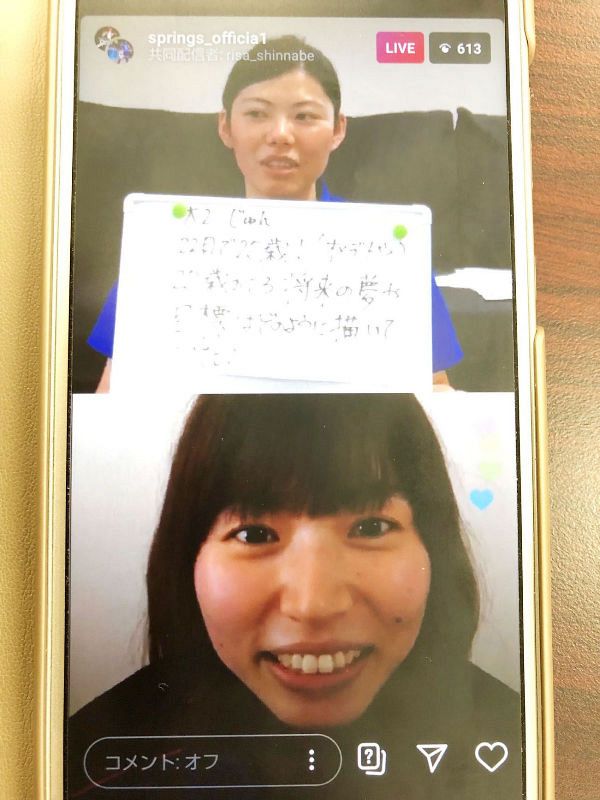 springs_officia1
共同配信者: risa_shinnabe
LIVE
613
大2 じゅん
22日で20歳!
歳のころ、将来の夢や
目標はどのように描いて
コメント: オフ